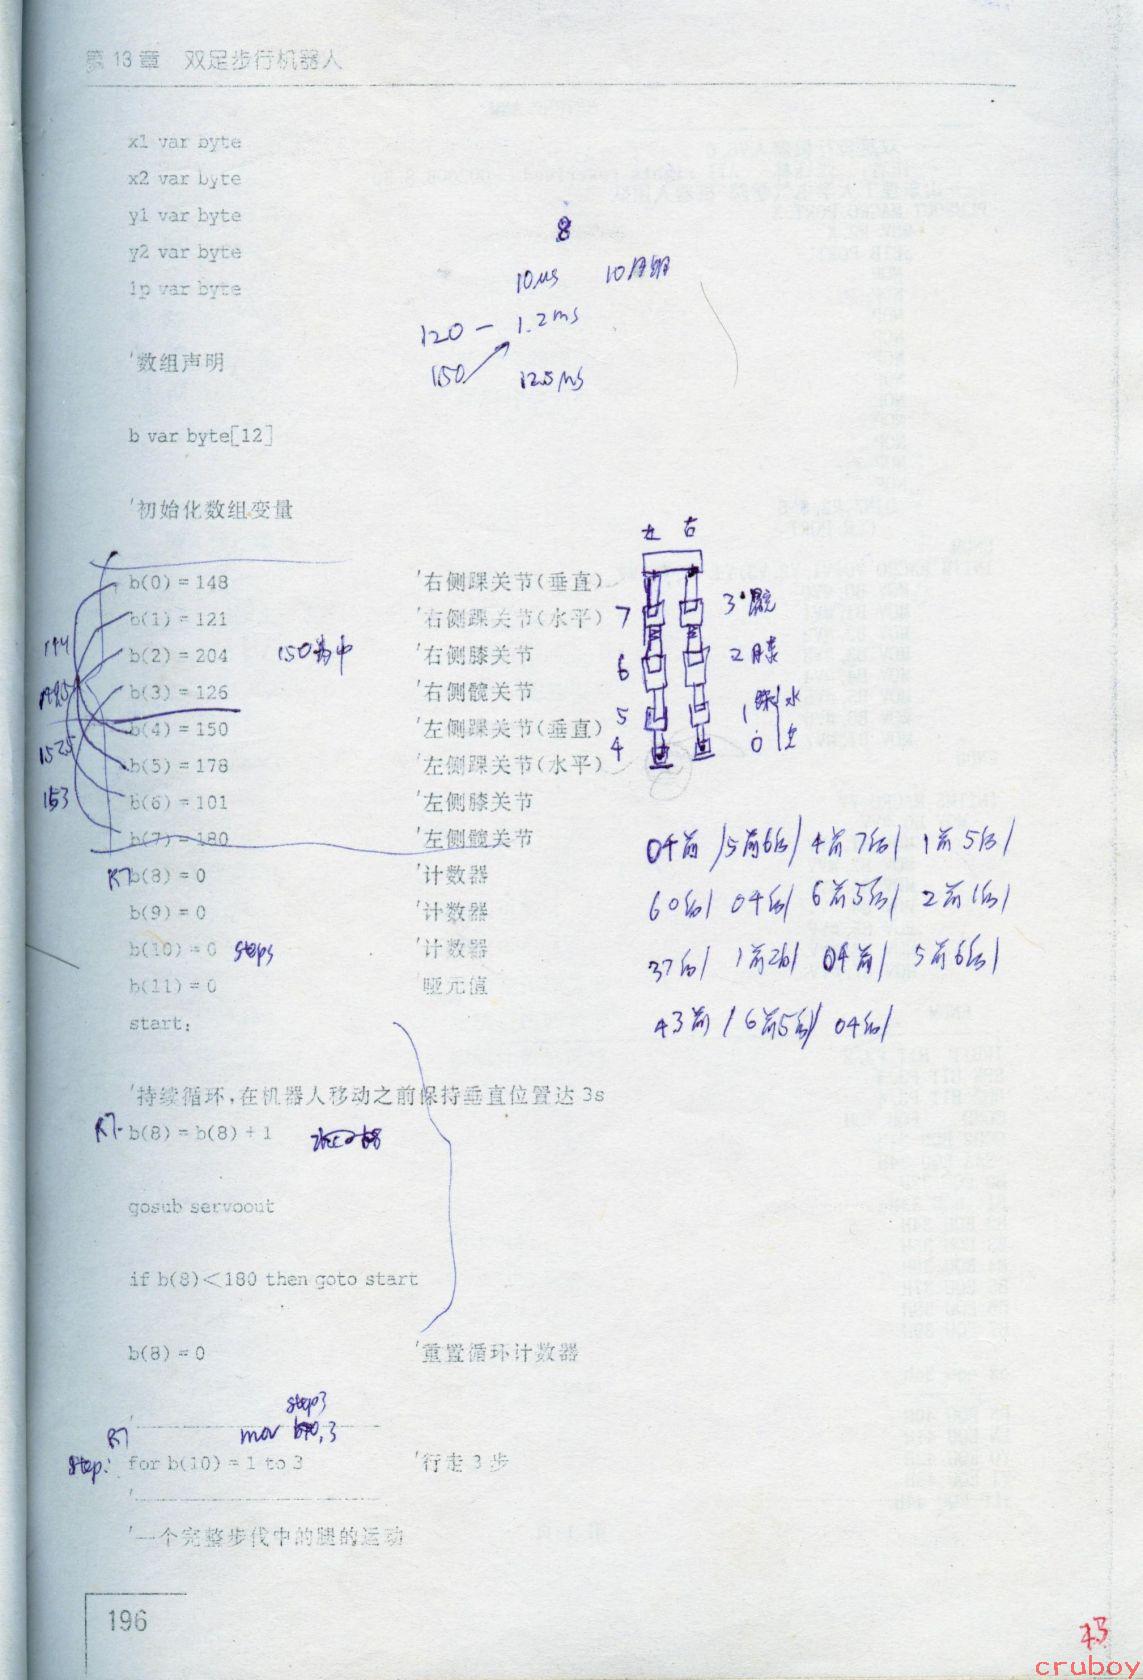 第 13 章 双足步行机器人
x1 var byte
x2 var byte
y1 var byte
y2 var byte
lp var byte
8
10μs
120 — 1.2ms
150
12.5ms
'数组声明
b var byte[12]
'初始化数组变量
左 右
b(0) = 148 '右侧踝关节(垂直)
b(1) = 121 '右侧踝关节(水平)
7 3 髋
b(2) = 204 150为中 '右侧膝关节
6 2 膝
b(3) = 126 '右侧髋关节
5 1 踝 水
b(4) = 150 '左侧踝关节(垂直)
4 0
b(5) = 178 '左侧踝关节(水平)
1525
b(6) = 101 '左侧膝关节
153
b(7) = 180 '左侧髋关节
04前 / 5前6后 / 4前7后 / 1前5后 /
R7 b(8) = 0 '计数器
60后 / 04后 / 6前5后 / 2前1后 /
b(9) = 0 '计数器
b(10) = 0 steps '计数器
37后 / 1前26 / 04前 / 5前6后 /
b(11) = 0 '哑元值
start:
43前 / 6前5后 / 04后 /
'持续循环,在机器人移动之前保持垂直位置达 3s
R7 b(8) = b(8) + 1
gosub servoout
if b(8)<180 then goto start
b(8) = 0 '重置循环计数器
step3
R7 mov 3
step: for b(10) = 1 to 3 '行走 3 步
'一个完整步伐中的腿的运动
196
cruboy